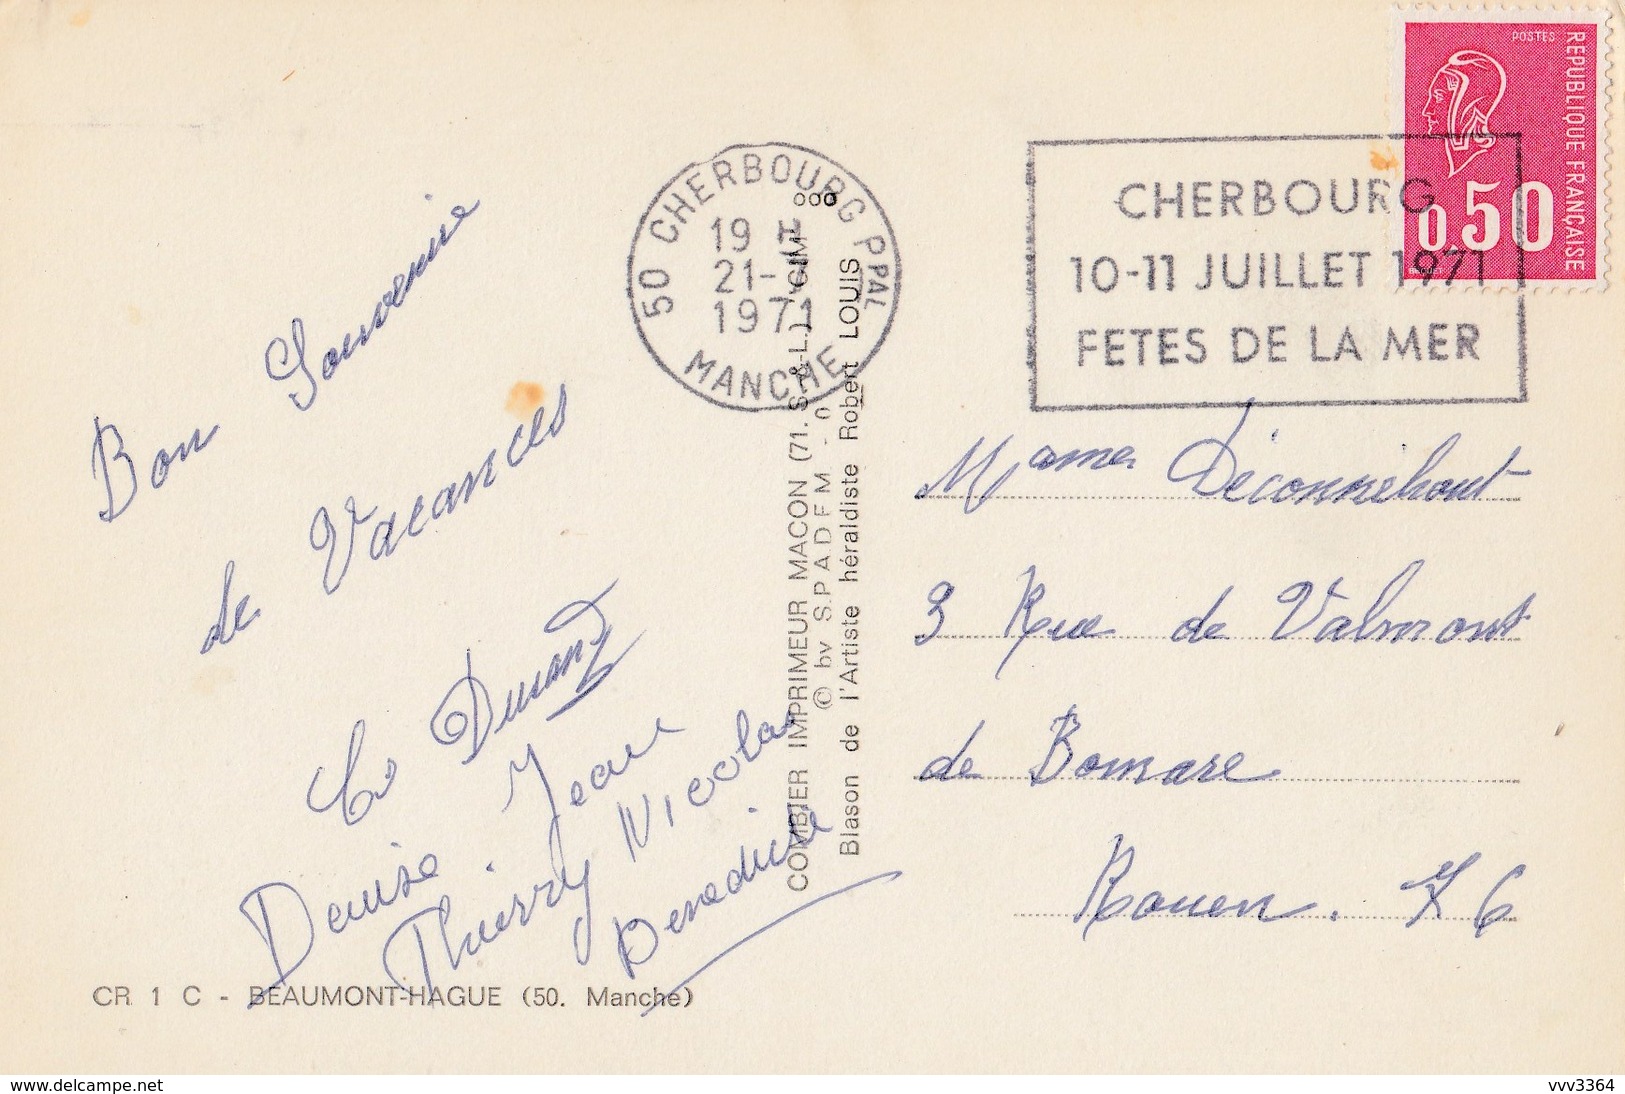 POSTES
REPUBLIQUE FRANÇAISE
0,50
50 CHERBOURG PPAL
19 H
1971
MANCHE
CHERBOURG
10-11 JUILLET 1971
FETES DE LA MER
Bon Souvenir
de Vacances
Durand
Denise Jean
Thierry Nicolas
Benedicte
COMBIER IMPRIMEUR MACON (71. S.-&-L.) CIM
© by S.P.A.D.E.M. -
Blason de l'Artiste héraldiste Robert LOUIS
Mame Déconnehout
3 Rue de Valmont
de Bomare
Rouen. 76
CR 1 C - BEAUMONT-HAGUE (50. Manche)
www.delcampe.net
vvv3364